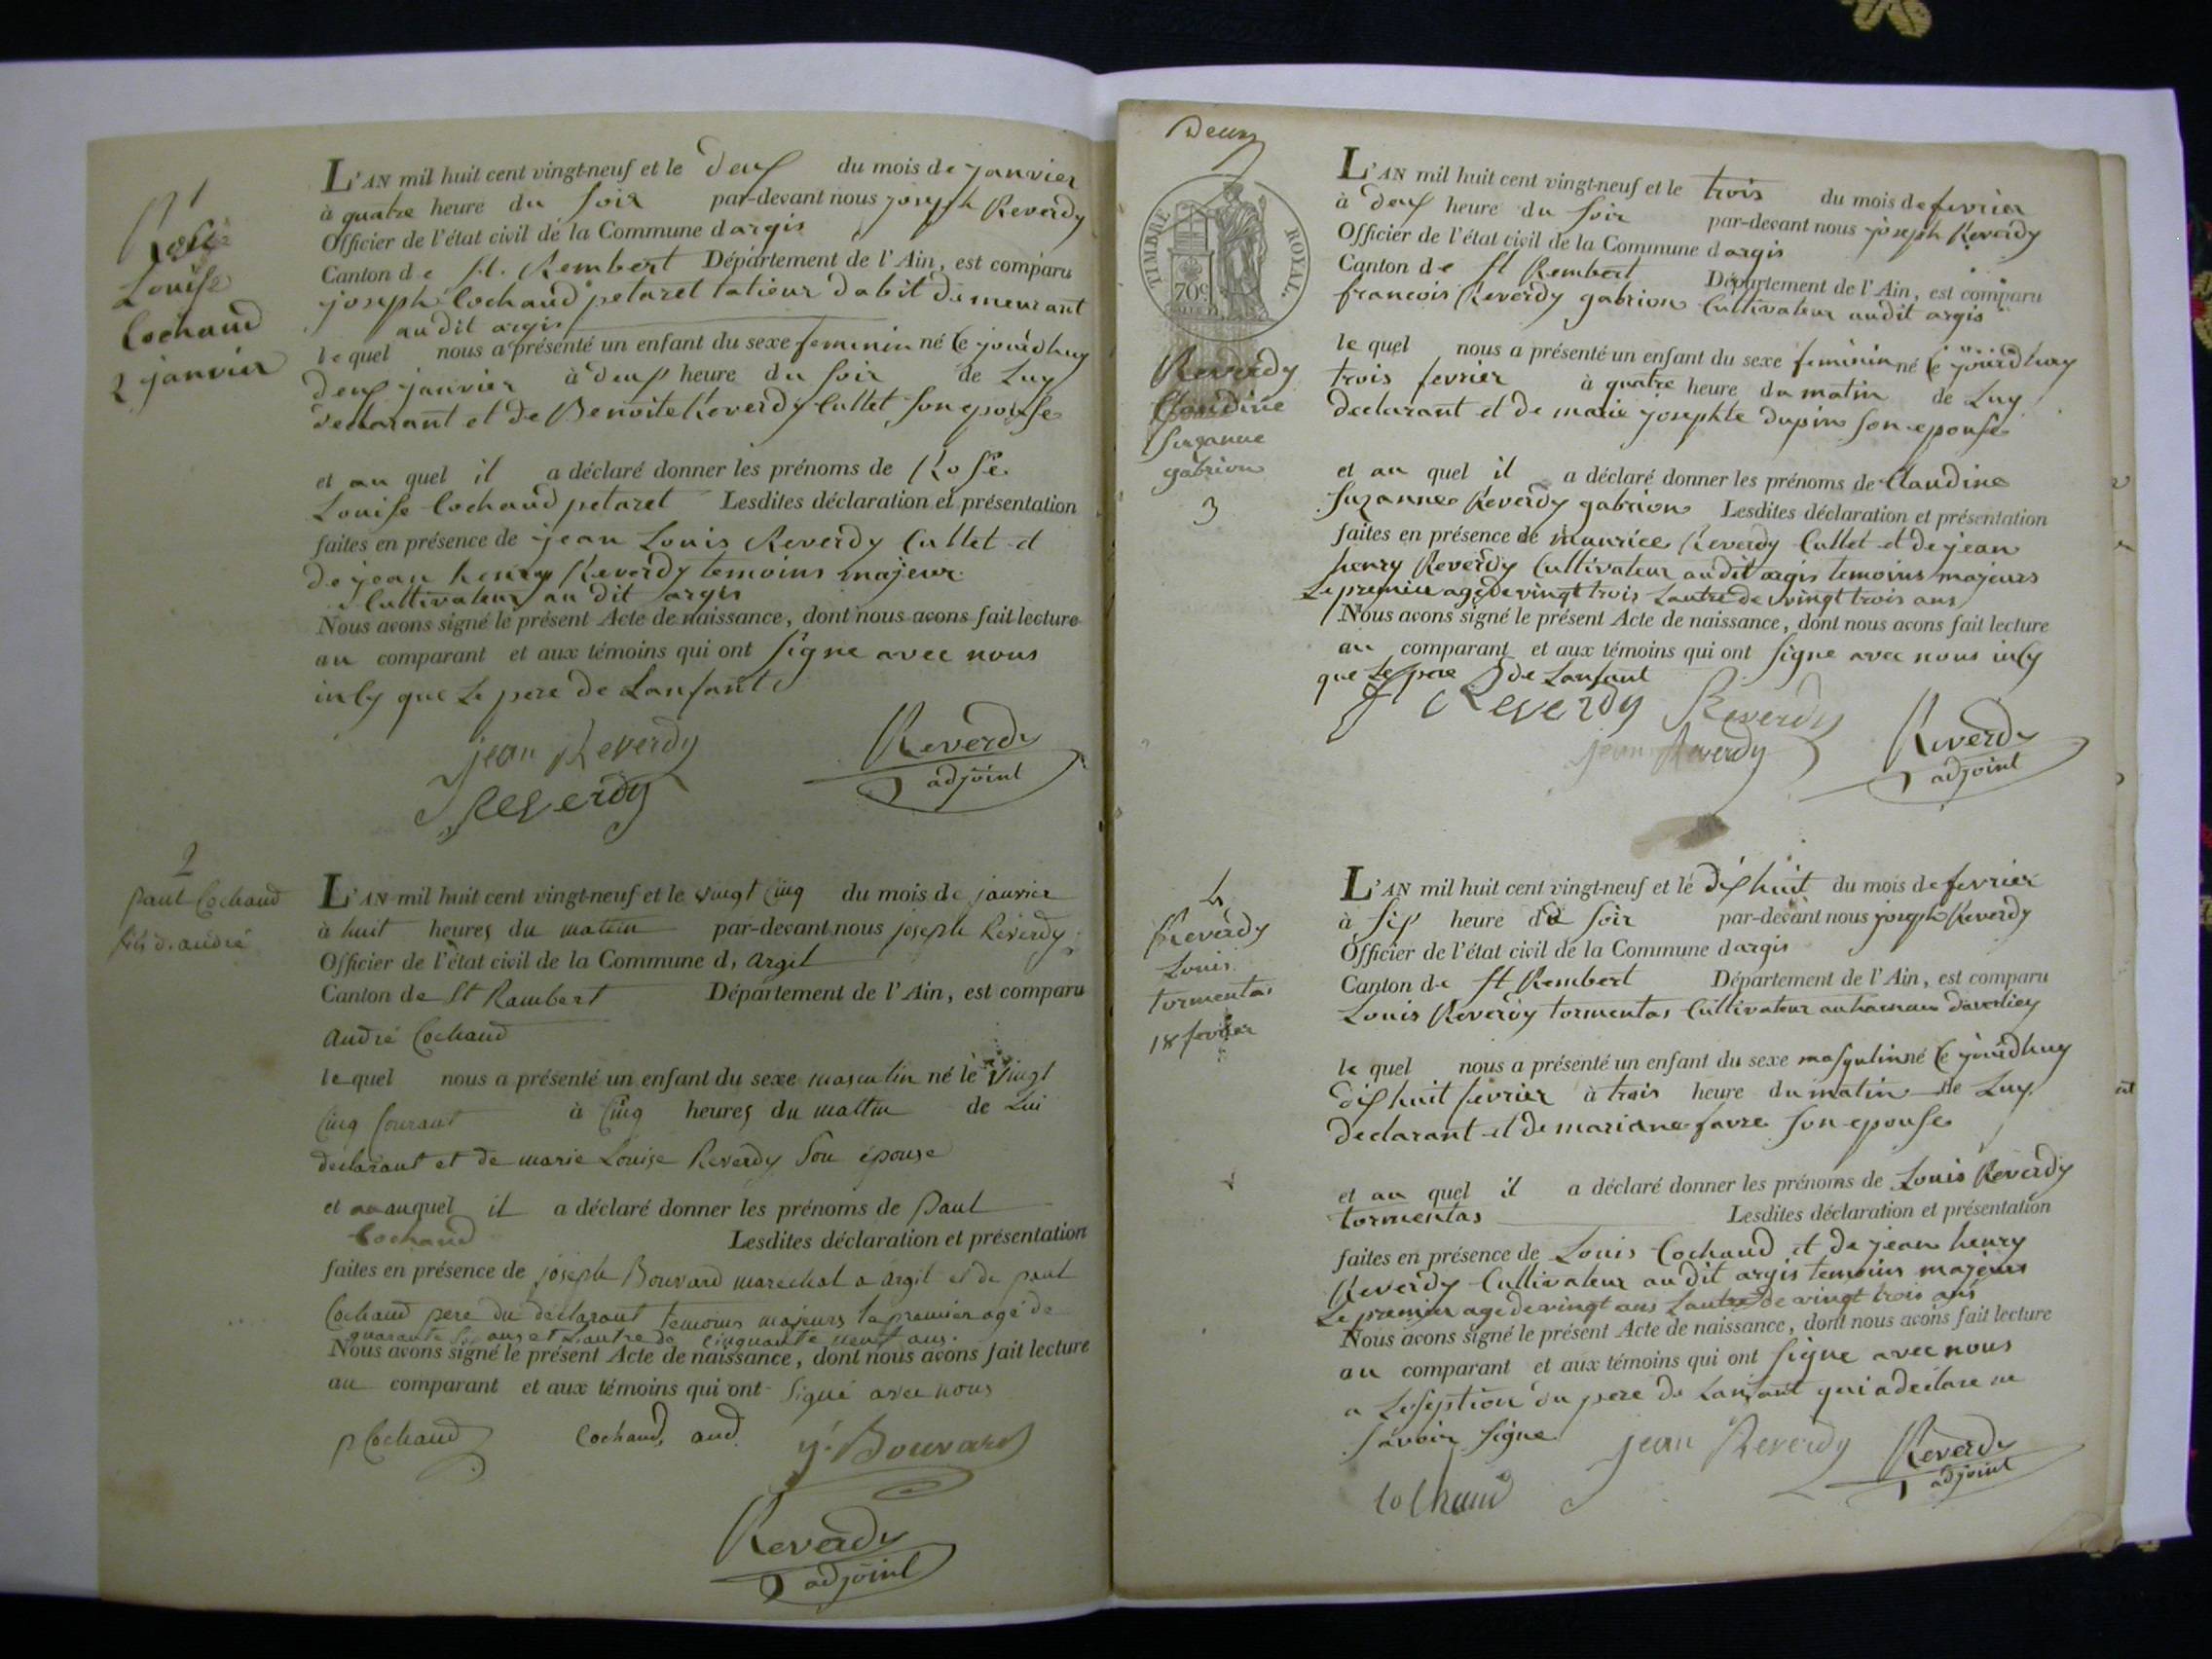 1
Rose
Louise
Cochaud
2 janvier
L'AN mil huit cent vingt-neuf et le deux du mois de janvier
à quatre heure du soir par-devant nous joseph Reverdy
Officier de l'état civil de la Commune d argis
Canton de St. Rembert Département de l'Ain, est comparu
joseph Cochaud petaret demeurant
au dit argis
le quel nous a présenté un enfant du sexe feminin né le jourdhuy
deux janvier à deux heure du soir de Luy
declarant et de Benoite Reverdy Cullet son epouse
et au quel il a déclaré donner les prénoms de Rose
Louise Cochaud petaret Lesdites déclaration et présentation
faites en présence de jean Louis Reverdy Cullet et
de jean henry Reverdy temoins majeur
Cultivateur au dit argis
Nous avons signé le présent Acte de naissance, dont nous avons fait lecture
au comparant et aux témoins qui ont signe avec nous
insy que Le pere de Lanfant
jean Reverdy
Reverdy
Reverdy
adjoint
2
paul Cochaud
fils d'andré
L'AN mil huit cent vingt-neuf et le vingt Cinq du mois de janvier
à huit heures du matin par-devant nous joseph Reverdy
Officier de l'état civil de la Commune d, Argit
Canton de St Rambert Département de l'Ain, est comparu
André Cochaud
le quel nous a présenté un enfant du sexe masculin né le vingt
Cinq Courant à Cinq heures du mattin de Lui
déclarant et de marie Louise Reverdy Son épouse
et au auquel il a déclaré donner les prénoms de Paul
Cochaud Lesdites déclaration et présentation
faites en présence de joseph Bouvard marechal a Argit et de paul
Cochaud pere du declarant temoins majeurs le premier agé de
quarante ans et Lautre de Cinquante neuf ans.
Nous avons signé le présent Acte de naissance, dont nous avons fait lecture
au comparant et aux témoins qui ont Signé avec nous
p Cochaud Cochaud, and. j. Bouvard
Reverdy
adjoint
Deux
TIMBRE ROYAL.
70c
Reverdy
Claudine
Suzanne
gabrion
3
L'AN mil huit cent vingt-neuf et le trois du mois de fevrier
à deux heure du soir par-devant nous joseph Reverdy
Officier de l'état civil de la Commune d argis
Canton de St Rembert Département de l'Ain, est comparu
francois Reverdy gabrion Cultivateur audit argis
le quel nous a présenté un enfant du sexe feminin né le jourdhuy
trois fevrier à quatre heure du matin de Luy
declarant et de marie josephte dupin son epouse
et au quel il a déclaré donner les prénoms de Claudine
Suzanne Reverdy gabrion Lesdites déclaration et présentation
faites en présence de maurice Reverdy Cullet et de jean
henry Reverdy Cultivateur au dit argis temoins majeurs
Le premier age de vingt trois Lautre de vingt trois ans
Nous avons signé le présent Acte de naissance, dont nous avons fait lecture
au comparant et aux témoins qui ont signe avec nous insy
que Le pere de Lanfant
Reverdy Reverdy
jean Reverdy
Reverdy
adjoint
4
Reverdy
Louis
tormentas
18 fevrier
L'AN mil huit cent vingt-neuf et le dix huit du mois de fevrier
à six heure du soir par-devant nous joseph Reverdy
Officier de l'état civil de la Commune d argis
Canton de St Rembert Département de l'Ain, est comparu
Louis Reverdy tormentas Cultivateur au hameau
le quel nous a présenté un enfant du sexe masqulin né le jourdhuy
dix huit fevrier à trois heure du matin de Luy
declarant et de mariane favre son epouse
et au quel il a déclaré donner les prénoms de Louis Reverdy
tormentas Lesdites déclaration et présentation
faites en présence de Louis Cochaud et de jean henry
Reverdy Cultivateur au dit argis temoins majeurs
Le premier age de vingt ans Lautre de vingt trois ans
Nous avons signé le présent Acte de naissance, dont nous avons fait lecture
au comparant et aux témoins qui ont signe avec nous
a Lexseption du pere de Lanfant qui a declare ne
savoir signe
jean Reverdy
Cochaud
Reverdy
adjoint